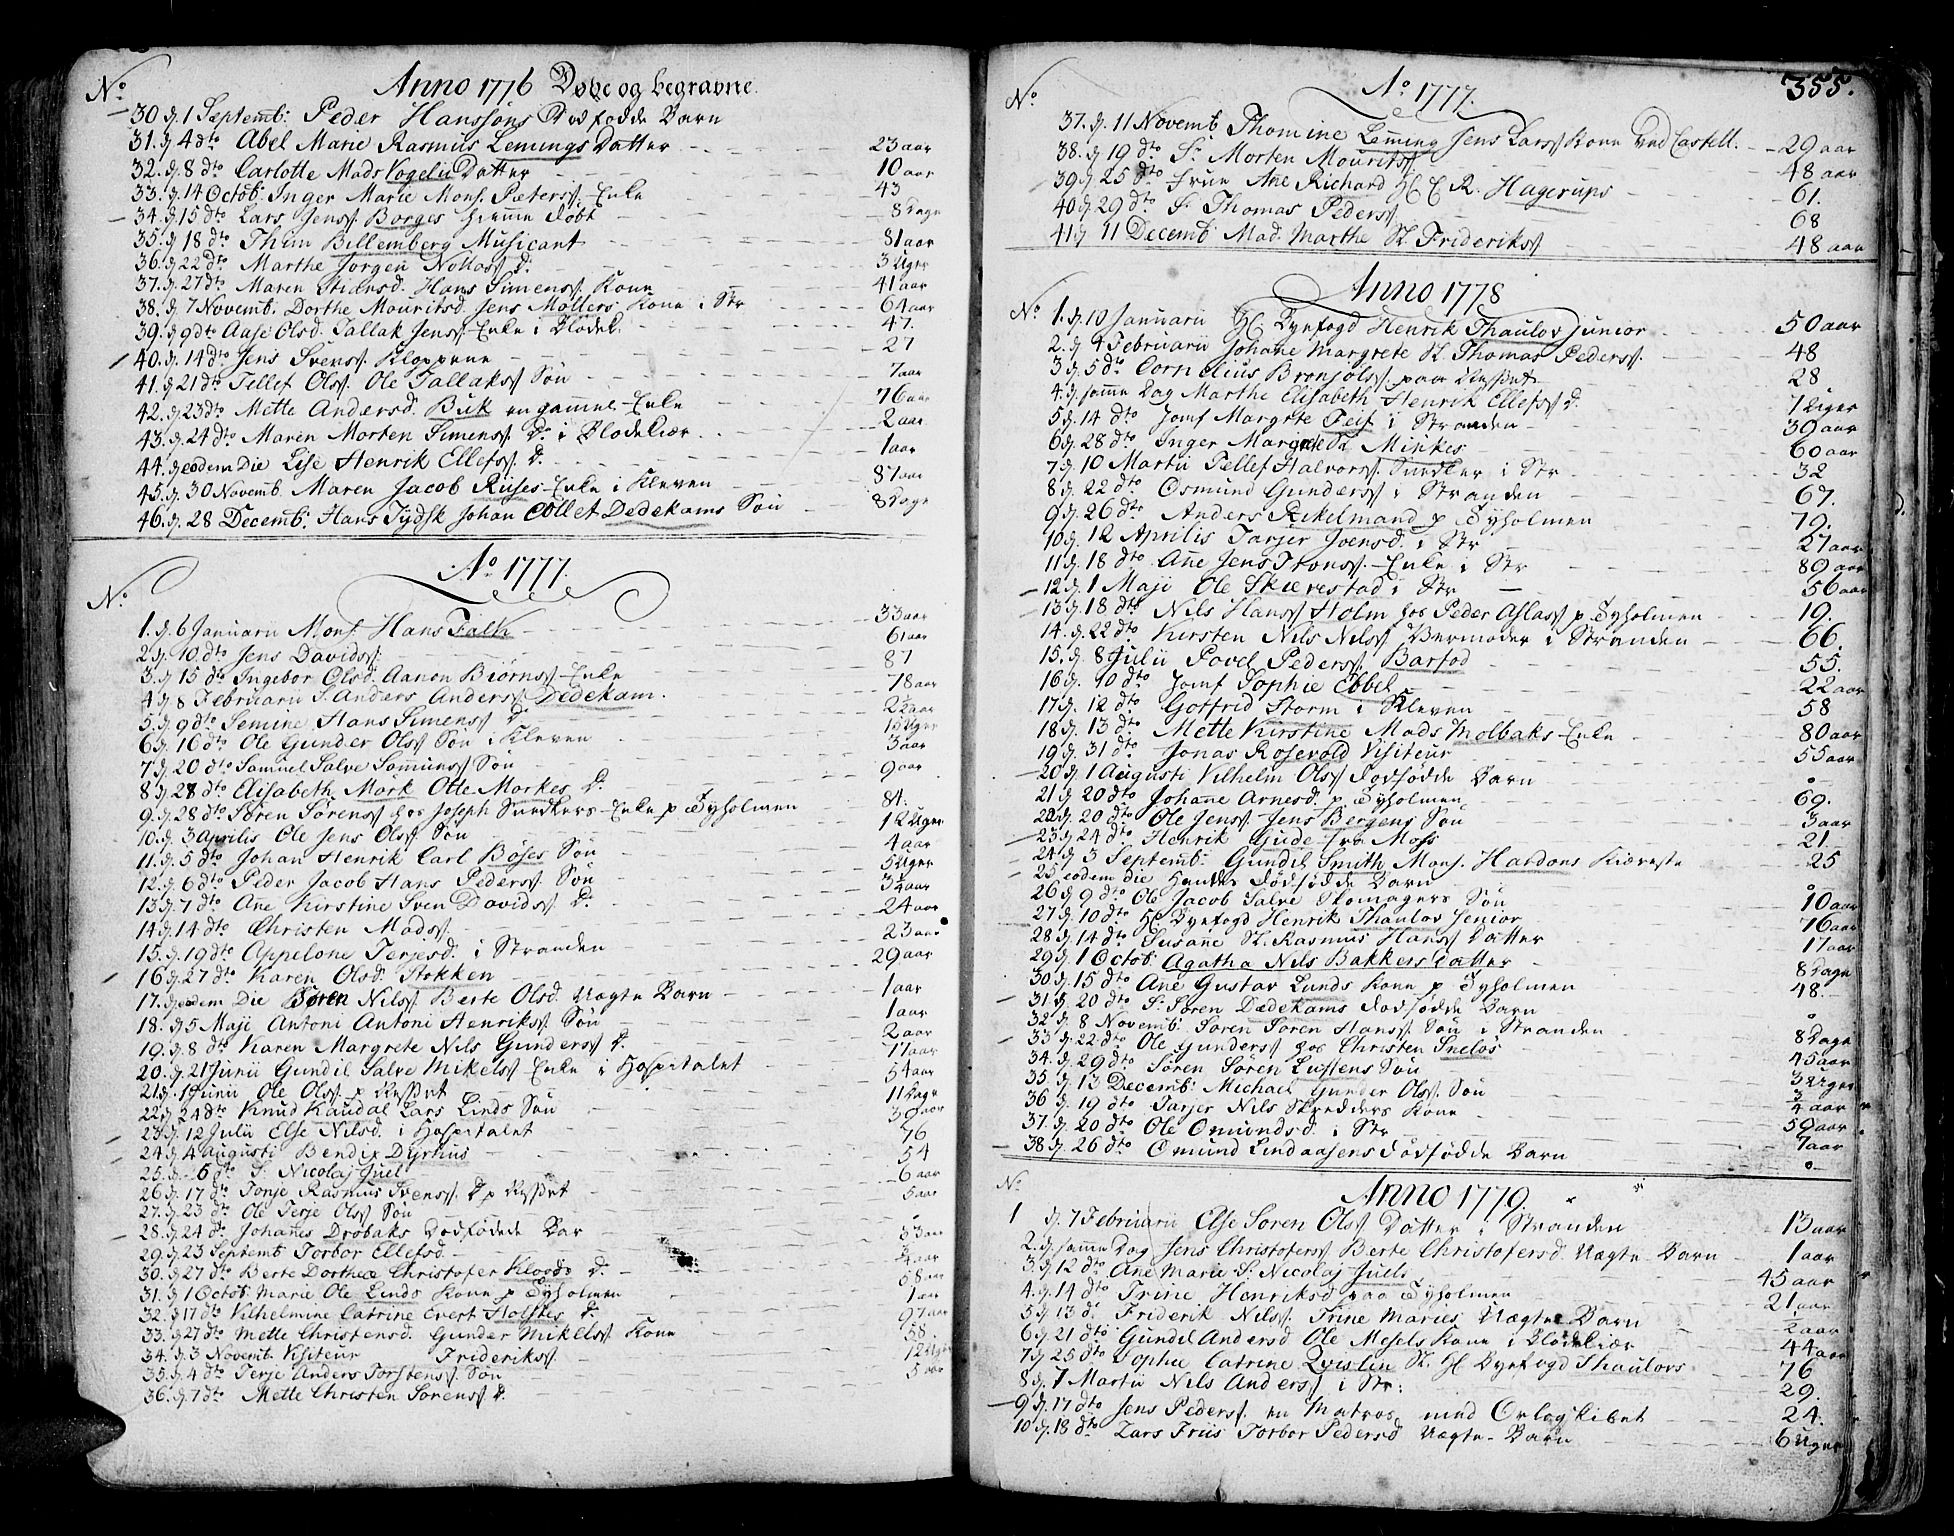 No Anno 1776 Døde og begravne.
30. d. 1 Septemb: Peder Hanssøns Dødfødde Barn
31. d 4 dto Abel Marie Rasmus Lemings Datter 23 aar
32. d 8 dto Carlotte Mads Vogelii Datter 10 aar
33. d 14 Octob: Inger Marie Mons. Pæters Enke 43
34. d 15 dto Lars Jenss. Borges hiemme døbt 8 Dage
35. d 18 dto Thim Billemberg Musicant 81 aar
36. d 22 dto Marthe Jørgen D. 3 Uger
37. d 27 dto Maren Hans Simens Kone 41 aar
38. d 7 Novemb. Dorthe Mouritsd. Jens Møllers Kone i Str 64 aar
39. d 9 dto Aase Olsd. Tallak Jens Enke i Blodek. 47.
40. d. 14 dto Jens Svens. Kloppene 27
41. d 21 dto Tellef Ols. Ole Tallaks Søn 7 aar
42. d 23 dto Mette Andersd. Buk en gammel Enke 76 aar
43. d. 24 dto Maren Morten Simens D. i Blodekiær 2 aar
44. d eodem Die Lise Henrik Ellefs. D. 1 aar
45. d. 30 Novemb. Maren Jacob Riises Enke i Kleven 87 aar
46. d. 28 Decemb: Hans Tydsk Johan Collet Dedekams Søn 8 Dage
Ao 1777.
No
1. d. 6 Januarii Mons. Hans Falk 33 aar
2 d. 10 dto Jens Davids. 61 aar
3. d 15 dto Ingebor Olsd. Aanon Biørns. Enke 87
4. d 8 Februarii S. Anders Anders Dedekam. 78 aar
5. d 9 dto Semine Hans Simens D. 2 aar
6 d 16 dto Ole Gunder Ols Søn i Kleven Uger
7 d 20 dto Samuel Salve Søn 3 aar
8 d 28 dto Elisabeth Mork Otte Morkes D. 9 aar
9. d 28 dto Søren Sørens hos Joseph Snedkers Enke p Tyholmen 84.
10. d. 3 Aprilis Ole Jens Ols Søn 12 Uger
11. d. 5 dto Johan Henrik Carl Bøses Søn 4 aar
12. d 6 dto Peder Jacob Hans Peders. Søn 5 Uger
13. d. 7 dto Ane Kirstine Sven Davids D. aar
14 d 14 dto Christen Mads. 24 aar
15. d. 19 dto Appelone Terjesd. i Stranden 23 aar
16 d 27 dto Karen Olsd. Stokken 29 aar
17. d eodem Die Søren Nils. Berte Olsd. Uægte Barn 1 aar
18. d 5 Maji Antoni Antoni Henriks. Søn 1 aar
19. d. 8 dto Karen Margrete Nils Gunders D. 2 aar
20. d. 21 Junii Gundil Salve Mikels Enke i Hospitalet 77 aar
21. d. 1 Junii Ole Ols. p 54 aar
22. d 24 dto Knud Kaudal Lars Linds Søn 11 Dage
23. d. 12 Julii Else Nilsd. i Hospitalet 30 aar
24. d 4 Augusti Bendix Dyrhus 76
25. d. 6 dto S. Nicolaj Juel 54
26. d 17 dto Tonje Rasmus Svens. D. p 6 aar
27. d. 23 dto Ole Terje Ols Søn 5 aar
28. d 24 dto Johanes Drøbaks Dødfødede Bar
29. d 23 Septemb Torbor Ellefsd. 33 aar
30. d 27 dto Berte Dorthea Christofer D. aar
31. d 1 Octob. Marie Ole Linds Kone p Tyholmen 58 aar
32. d 17 dto Vilhelmine Catrine Evert Holskes D. 1 aar
33. d 27 dto Mette Christensd. Gunder Mikels Kone 97 aar
34. d. 3 Novemb. Visiteur Frideriks. 58.
35. d. 4 dto Terje Anders Torstens. Søn 12 Uger
36. d. 7 dto Mette Christen Sørens D. 5 aar
355.
Ao 1777.
No
37. d. 11 Novemb Thomine Leming Jens Lars Kone Ved Castell. 29 aar
38. d 19 dto Sr Morten Mourits 48 aar
39 d 25 dto Frue Ane Richard Hagerups 61.
40. d. 29 dto S. Thomas Peders. 68
41. d 11 Decemb Mad. Marthe Sl. Frideriks 48 aar
Anno 1778
No
1. d. 19 Januarii Byefogd Henrik Thaulov Junior 50 aar
2. d 4 Februarii Johane Margrete Sl. Thomas Peders. 48
3. d 5 dto Cornelius Brynjols paa 28
4. d samme Dag Marthe Elisabeth Henrik Ellefs D. 7 Uger
5 d 14 dto Jomf Margrte Feif i Stranden 39 aar
6 d 28 dto Inger Margrete Sl Minkes 60 aar
7 d. 10 Martii Tellef Halvors. Snedker i Str 32
8 d. 22 dto Osmund Gunders i Stranden 67.
9 d. 26 dto Anders Rekelmand p Tyholmen 79.
10 d. 12 Aprilis Tarjer Joensd. i Str 27 aar
11 d. 18 dto Ane Jens Trons. Enke i Str 89 aar
12 d. 1 Maji Ole Skierestad i Str 56 aar
13 d. 18 dto Nils Hans Holm hos Peder Aslas p Tyholmen 19.
14. d. 22 dto Kirsten Nils Nils. Vermoder i Stranden 66.
15. d. 8 Julii Povel Peders. Barfod 55.
16 d. 10 dto Jomf Sophie Ebbel 22 aar
17 d. 12 dto Gotfrid Storm i Kleven 58
18 d. 13 dto Mette Kirstine Mads Molbaks Enke 80 aar
19 d. 31 dto Jonas Rosevold Visiteur 55 aar
20 d. 1 Augusti Vilhelm Ols Dødfødde Barn 0
21 d. 20 dto Johane Arnesd. p Tyholmen 69.
22 d. 20 dto Ole Jens Jens Bergens Søn 3 aar
23 d. 24 dto Henrik Gude fra Moss 21.
24 d 3 Septemb: Gundil Smith Mons. Hardons Kiæreste 25
25 eodem die Hendes Dødfødde Barn 0
26 d 9 dto Ole Jacob Salve Skomagers Søn 10 aar
27 d. 10 dto Byefogd Henrik Thaulov Senior 76 aar
28 d. 14 dto Susane Sl. Rasmus Hans Datter 17 aar
29 d. 1 Octob Agatha Nils Bakkers Datter 8 Dage
30 d. 15 dto Ane Gustav Lunds Kone p Tyholmen 48.
31 d. 20 dto S. Søren Dædekams Dødfødde Barn 0
32 d. 8 Novemb: Søren Søren Hans. Søn i Stranden 8 Dage
33 d. 22 dto Ole Gunders hos Christen Sneløs 45 aar
34. d. 29 dto Søren Søren Søn 3 Uger
35. d. 13 Decemb: Michael Gunder Ols. Søn 3/4 aar
36 d. 19 dto Tarjer Nils Skredders Kone 50 aar
37. d. 20 dto Ole Omundsd. i Str 7 aar
38. d. 26 dto Omund Lindaasens Dødfødde Barn 0
Anno 1779
No
1 d. 7 Februarii Else Søren Ols Datter i Stranden 13 aar
2. d. samme Dag Jens Christofers Berte Christofersd. Uægte Barn 1 aar
3. d 12 dto Ane Marie S. Nicolaj Juels 45 aar
4. d. 14 dto Trine Henriksd paa Tyholmen 21 aar
5 d. 13 dto Friderik Nils. Trine Maries Uægte Barn aar
6 d. 21 dto Gundil Andersd Ole Mesels Kone i Blodekiær 44 aar
7 d 25 dto Sophie Catrine Qvislin Sl. Byefogd Thaulovs 76
8 d. 1 Martii Nils Anders i Str: 29.
9 d. 17 dto Jens Peders. en Matros med Orlogskibet 24.
10 d. 18 dto Lars Friis Torbor Pedersd Uægte Barn 6 Uger